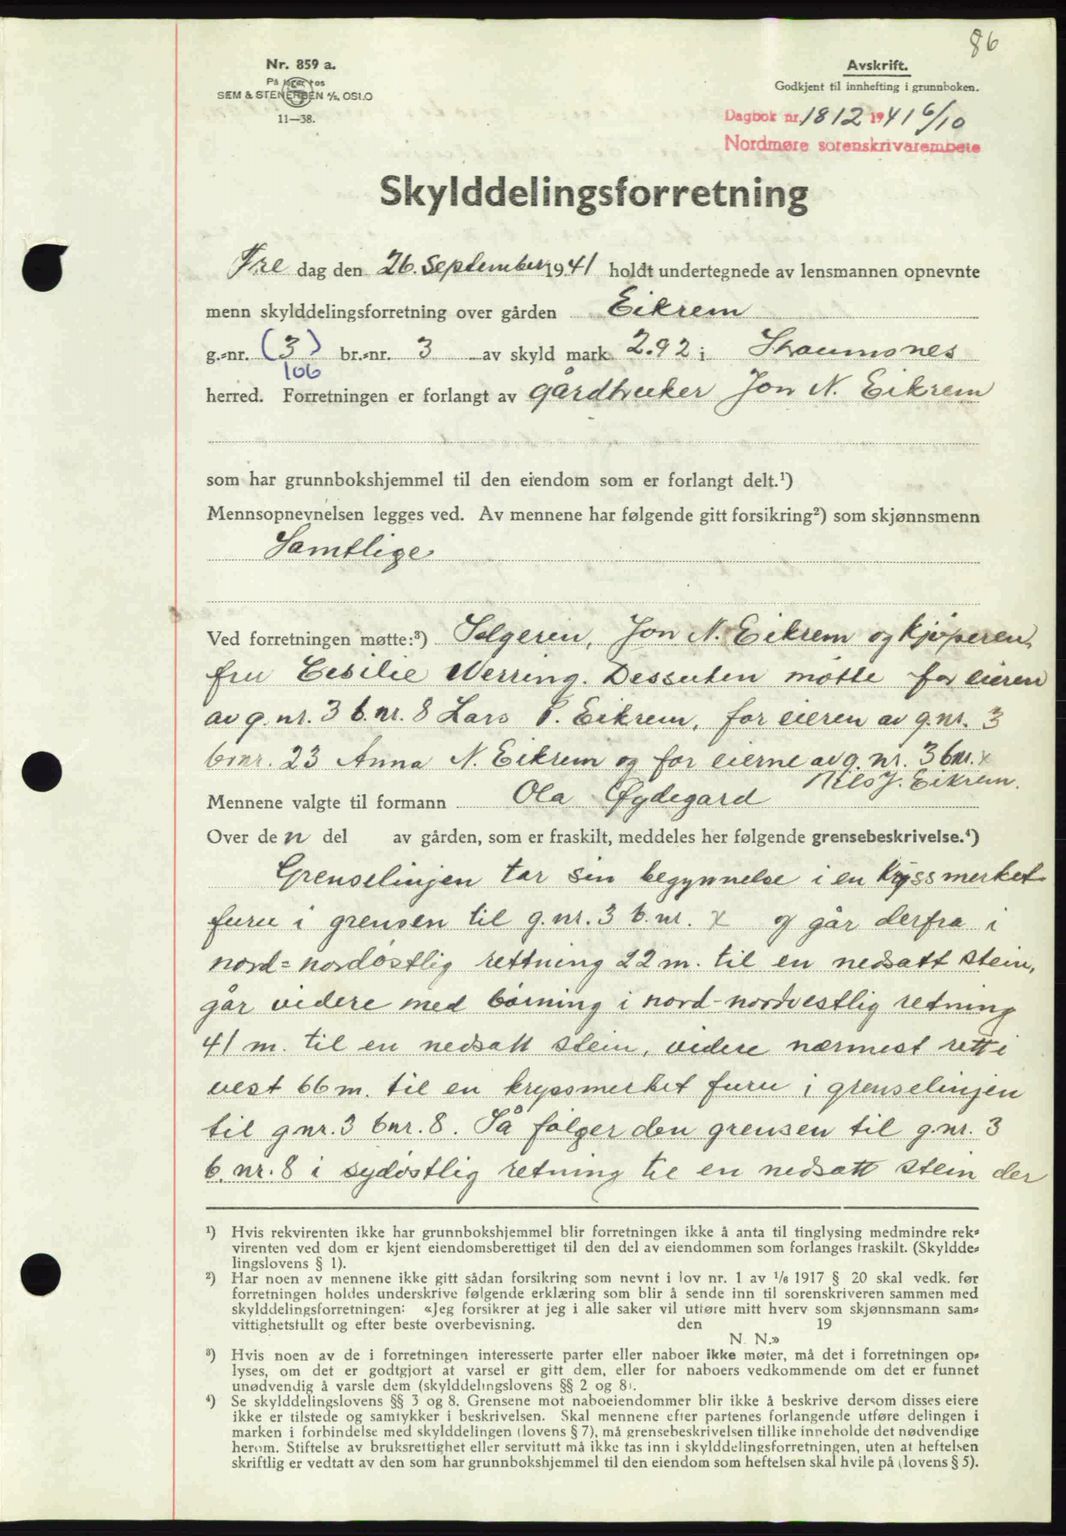 86
Nr. 859 a.
På lager hos
SEM & STENERSEN A/S, OSLO
11—38.
Avskrift.
Godkjent til innhefting i grunnboken.
Dagbok nr. 1812 1941 6/10
Nordmøre sorenskrivarembete
Skylddelingsforretning
Fre dag den 26. September 1941 holdt undertegnede av lensmannen opnevnte
menn skylddelingsforretning over gården Eikrem
g.-nr. (3) br.-nr. 3 av skyld mark 2.92 i Straumsnes
106
herred. Forretningen er forlangt av gårdbruker Jon N. Eikrem
som har grunnbokshjemmel til den eiendom som er forlangt delt.¹)
Mennsopnevnelsen legges ved. Av mennene har følgende gitt forsikring²) som skjønnsmenn
Samtlige
Ved forretningen møtte:³) Selgeren, Jon N. Eikrem og kjøperen,
fru Cesilie Werring. Dessuten møtte for eieren
av g.nr. 3 b.nr. 8 Lars P. Eikrem, for eieren av g.nr. 3
b.nr. 23 Anna N. Eikrem og for eierne av g.nr. 3 bnr. x
Nils J. Eikrem.
Mennene valgte til formann Ola Øydegard
Over den del av gården, som er fraskilt, meddeles her følgende grensebeskrivelse.⁴)
Grenselinjen tar sin begynnelse i en kryssmerket
furu i grensen til g.nr. 3 b.nr. x og går derfra i
nord=nordøstlig rettning 22 m. til en nedsatt stein,
går videre med bøining i nord-nordvestlig retning
41 m. til en nedsatt stein, videre nærmest rett i
vest 66 m. til en kryssmerket furu i grenselinjen
til gnr. 3 bnr. 8. Så følger den grensen til g.nr. 3
b.nr. 8 i sydøstlig retning til en nedsatt stein der
¹) Hvis rekvirenten ikke har grunnbokshjemmel blir forretningen ikke å anta til tinglysing medmindre rek-
virenten ved dom er kjent eiendomsberettiget til den del av eiendommen som forlanges fraskilt. (Skyldde-
lingslovens § 1).
²) Har noen av mennene ikke gitt sådan forsikring som nevnt i lov nr. 1 av 1/6 1917 § 20 skal vedk. før
forretningen holdes underskrive følgende erklæring som blir å sende inn til sorenskriveren sammen med
skylddelingsforretningen: «Jeg forsikrer at jeg i alle saker vil utføre mitt hverv som skjønnsmann sam-
vittighetsfullt og efter beste overbevisning. den 19
N. N.»
³) Hvis noen av de i forretningen interesserte parter eller naboer ikke møter, må det i forretningen op-
lyses, om det er godtgjort at varsel er gitt dem, eller for naboers vedkommende om det er funnet
unødvendig å varsle dem (skylddelingslovens §§ 2 og 8).
⁴) Se skylddelingslovens §§ 3 og 8. Grensene mot naboeiendommer blir ikke å beskrive dersom disses eiere
ikke er tilstede og samtykker i beskrivelsen. Skal mennene efter partenes forlangende utføre delingen i
marken i forbindelse med skylddelingen (lovens § 7), må grensebeskrivelsen tillike inneholde det nødvendige
herom. Stiftelse av bruksrettighet eller servitutt må ikke tas inn i skylddelingsforretningen, uten at heftelsen
skriftlig er vedtatt av den som har grunnbokshjemmel til den eiendom som heftelsen skal hvile på (lovens § 5).